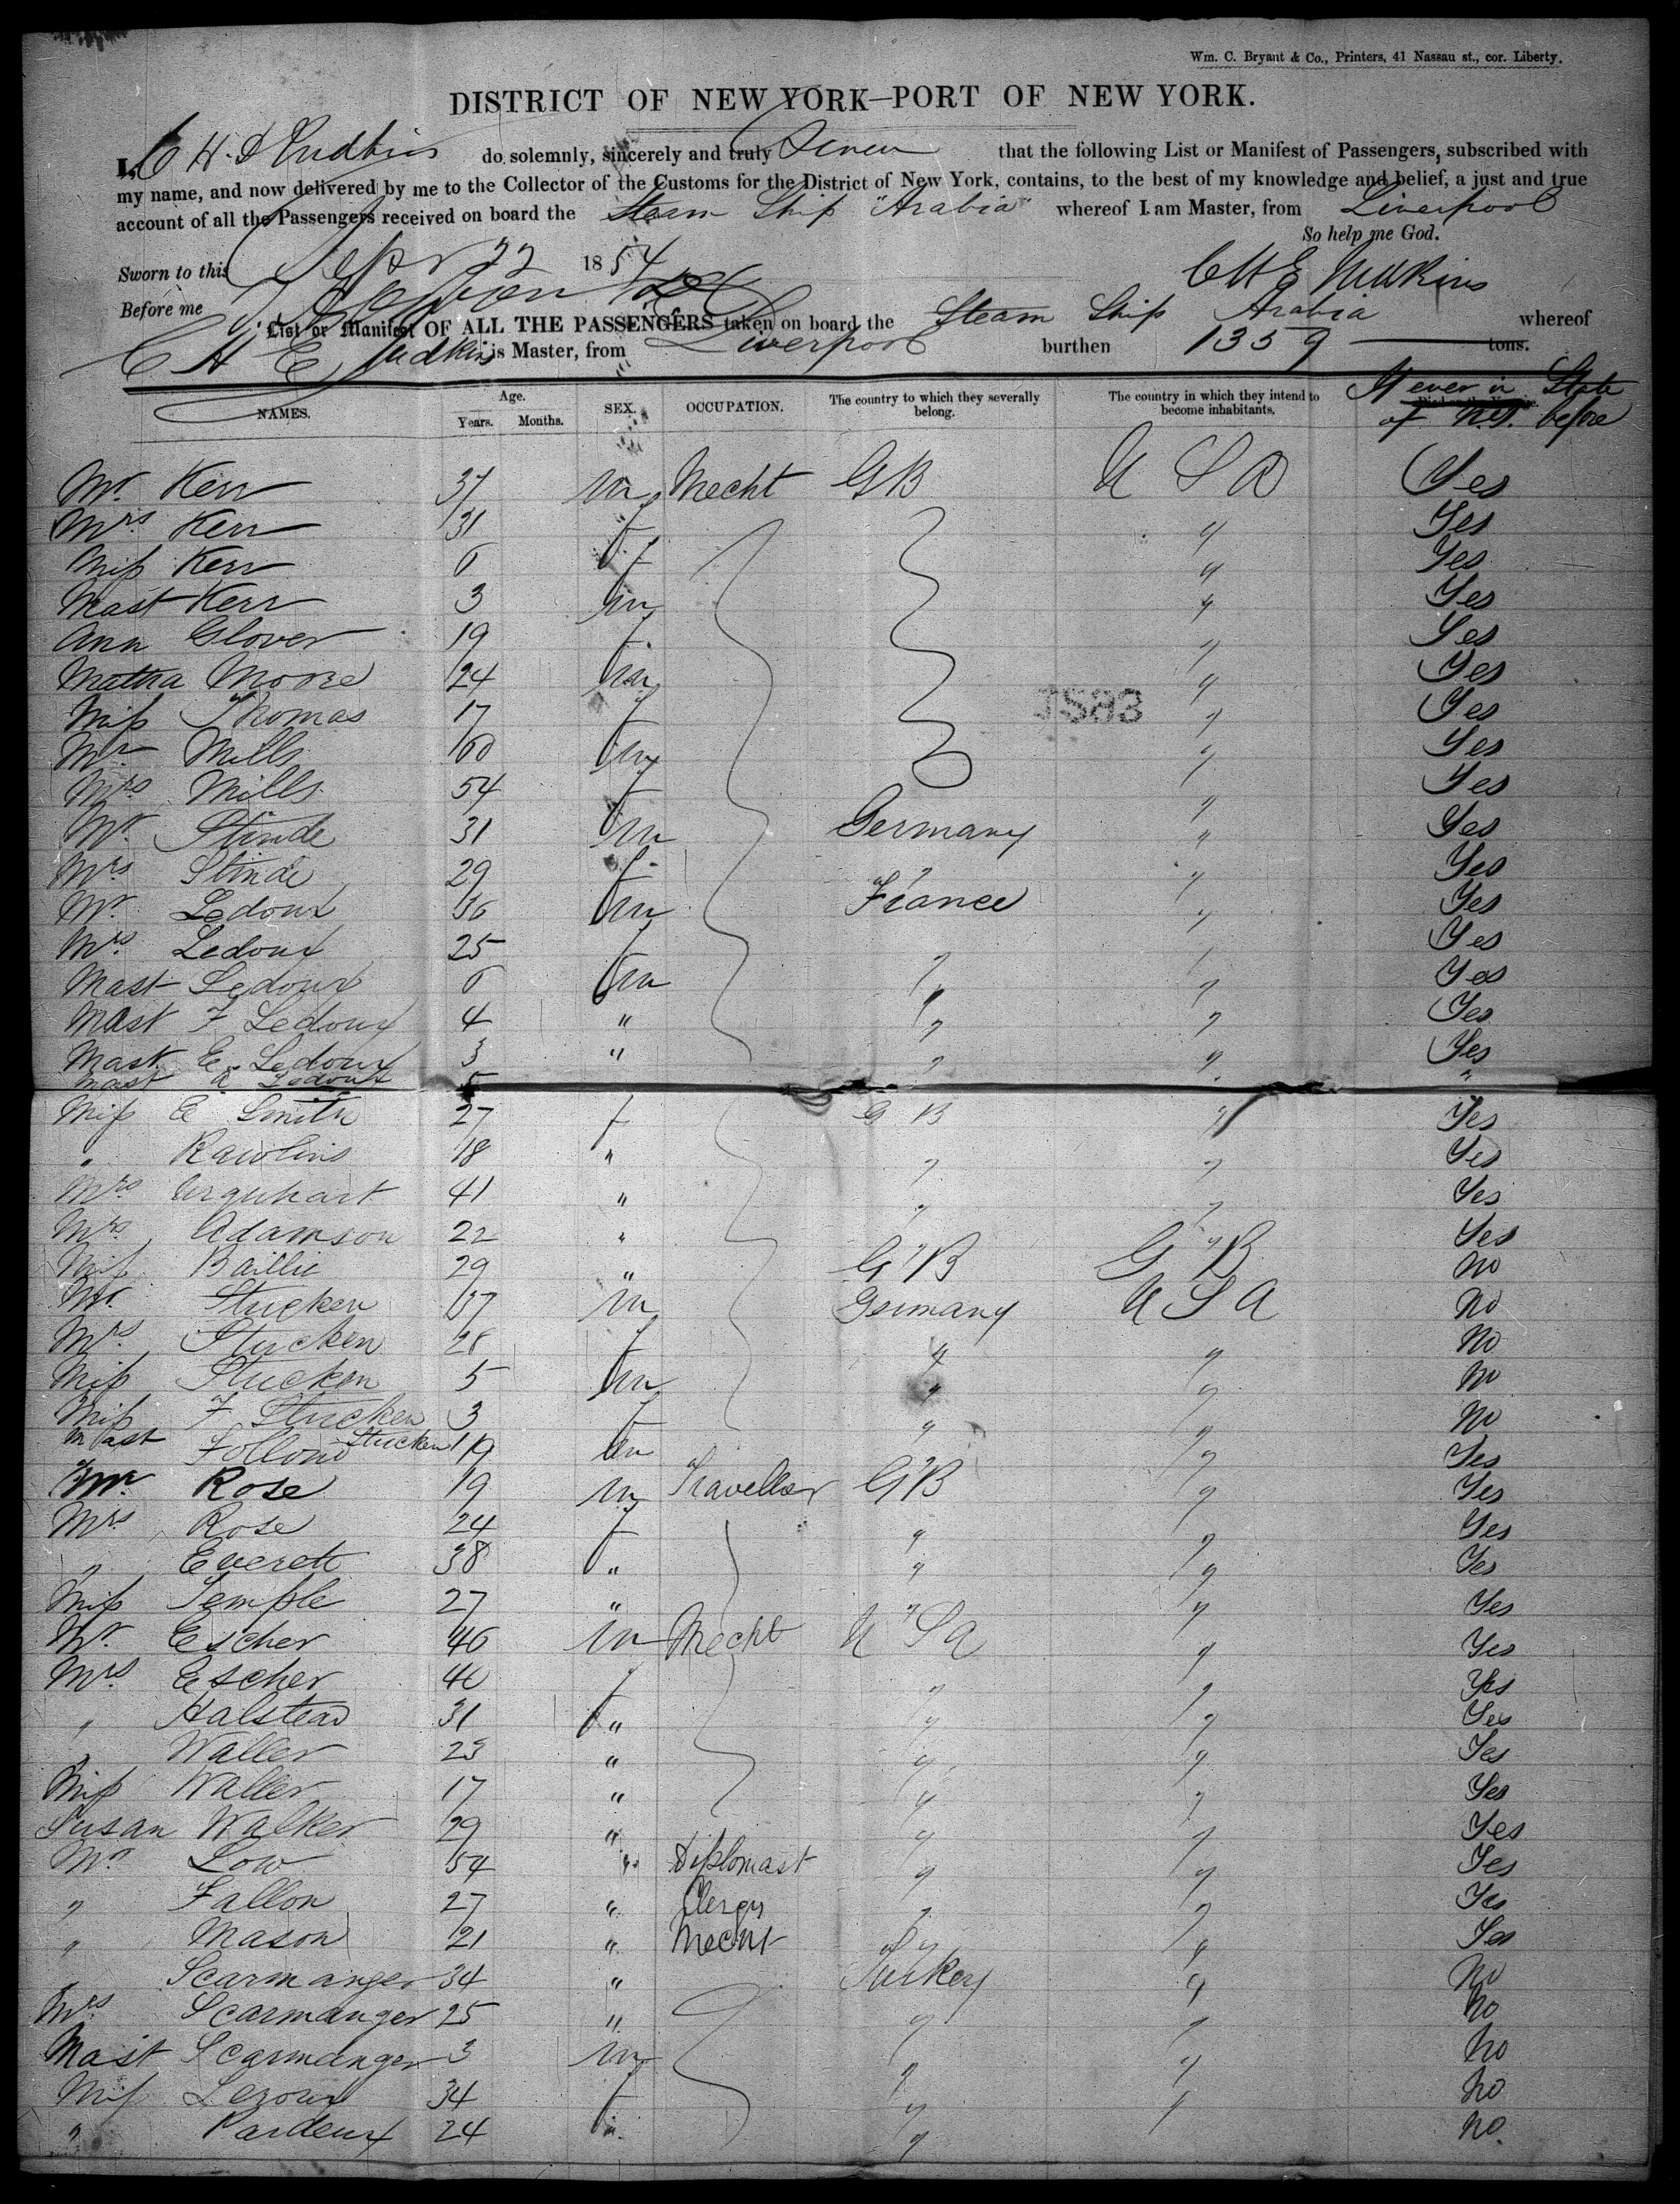 Wm. C. Bryant & Co., Printers, 41 Nassau st., cor. Liberty.
DISTRICT OF NEW YORK—PORT OF NEW YORK.
I, C H E Judkins do solemnly, sincerely and truly Swear that the following List or Manifest of Passengers, subscribed with
my name, and now delivered by me to the Collector of the Customs for the District of New York, contains, to the best of my knowledge and belief, a just and true
account of all the Passengers received on board the Steam Ship "Arabia" whereof I am Master, from Liverpool
So help me God.
Sworn to this Sepr 22 1854 CHE Judkins
Before me
List or Manifest OF ALL THE PASSENGERS taken on board the Steam Ship Arabia whereof
C H E Judkins is Master, from Liverpool burthen 1359 tons.
NAMES. Age. Years. Months. SEX. OCCUPATION. The country to which they severally belong. The country in which they intend to become inhabitants. If ever in State of N.Y. before
Mr. Kerr 37 m Mecht GB U S A Yes
Mrs Kerr 31 f " Yes
Miss Kerr 6 f " Yes
Mast Kerr 3 m " Yes
Ann Glover 19 f " Yes
Matha Moore 24 m " Yes
Miss Thomas 17 f " Yes
Mr Mills 60 m " Yes
Mrs Mills 54 f " Yes
Mr. Stinde 31 m Germany " Yes
Mrs Stinde 29 f " " Yes
Mr. Ledoux 36 m France " Yes
Mrs. Ledoux 25 f " " Yes
Mast Ledoux 6 m " " Yes
Mast F Ledoux 4 " " " Yes
Mast E Ledoux 3 " " " Yes
Mast A Ledoux "
Miss E Smith 27 f G B " Yes
" Rawlins 18 " " " Yes
Mrs Urquhart 41 " " " Yes
Mrs Adamson 22 " " " Yes
Miss Baillie 29 " G B G B No
Mr. Stucken 37 m Germany U S A No
Mrs. Stucken 28 f " " No
Miss Stucken 5 m " " No
Miss F Stucken 3 f " " No
Mast Stucken 1
Follow 19 m " " Yes
Mr. Rose 19 m Traveller GB " Yes
Mrs. Rose 24 f " " Yes
" Everett 38 " " " Yes
Miss Temple 27 " " " Yes
Mr. Escher 46 m Mecht U S A " Yes
Mrs. Escher 40 f " " Yes
" Halstead 31 " " " Yes
" Waller 23 " " " Yes
Miss Waller 17 " " " Yes
Susan Walker 29 " " " Yes
Mr. Low 54 " Diplomast " " Yes
" Fallon 27 " Clergy " " Yes
" Mason 21 " Mecht " " Yes
Scarmanger 34 " Turkey " No
Mrs. Scarmanger 25 " " " No
Mast Scarmanger 3 m " " No
Miss Leroux 34 f " " No
" Pardeux 24 " " No.